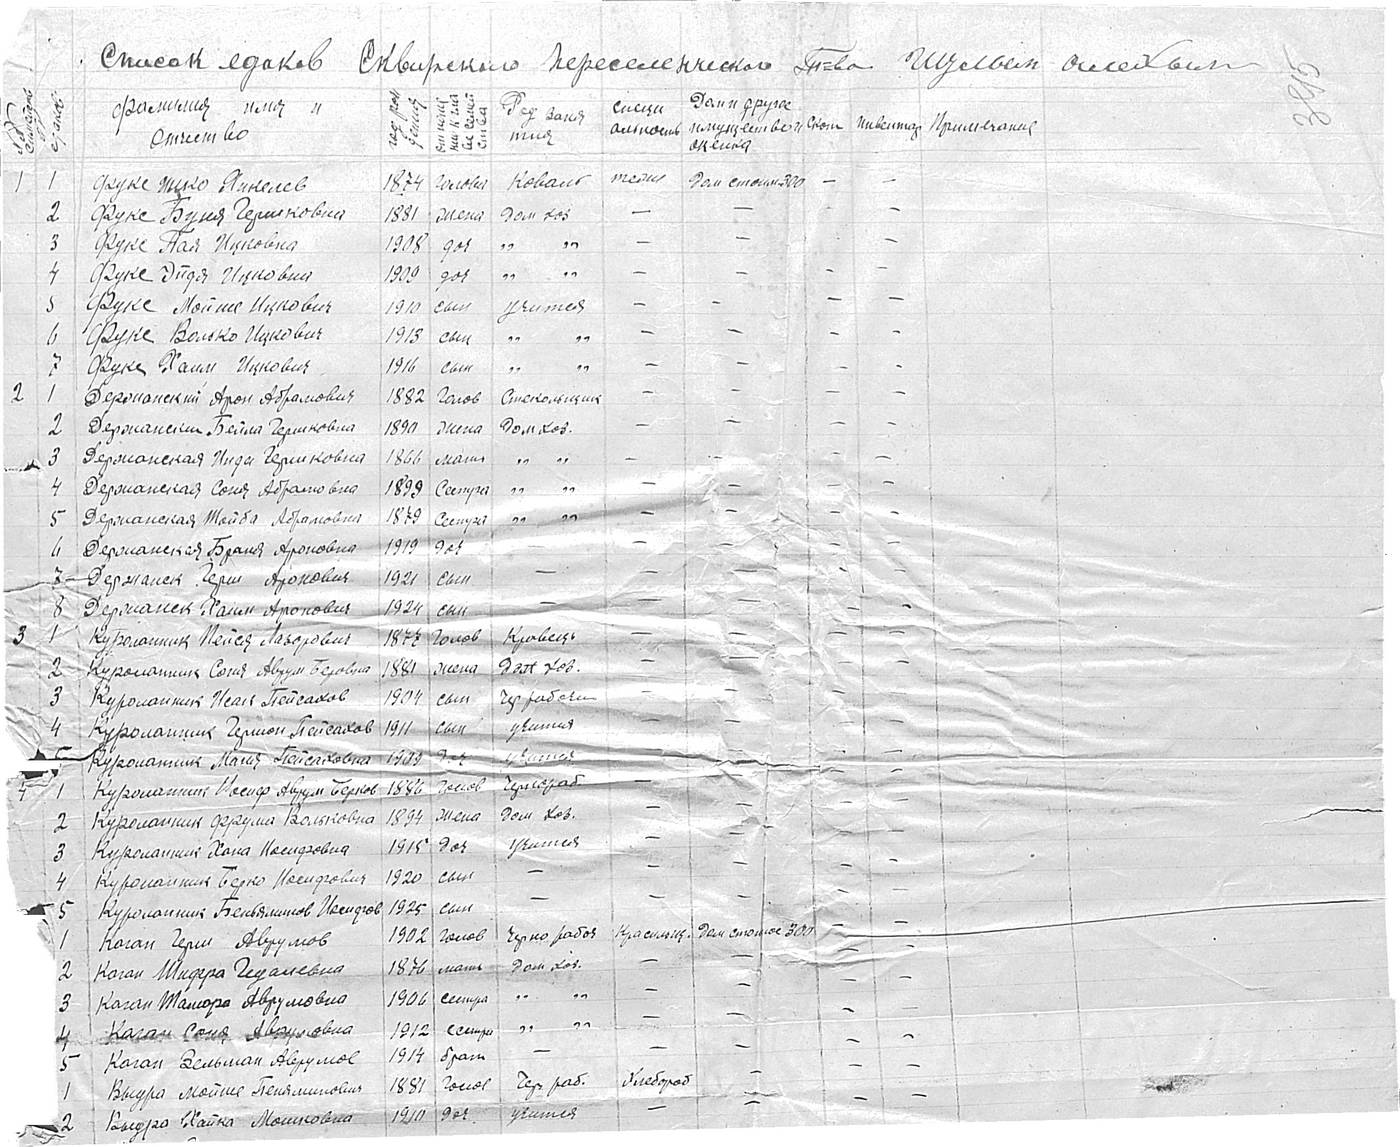 Список едоков Сквирского переселенческого Т-ва Шулым Алейхым
3815
фамилия имя и отчество год рож дения отноше ние к гла ве семей ства Род заня тия специ альность Дом и другое имущество и оценка Скот инвентар Примечание
1 1 Фукс Ицко Янкелев 1874 Голова Коваль Дом стоим 300 — —
2 Фукс Буня Гершковна 1881 жена Дом хоз — — —
3 Фукс Пая Ицковна 1908 доч „ „ — — —
4 Фукс Эйдя Ицковна 1909 доч „ „ — — — —
5 Фукс Мойше Ицкович 1910 сын учится — - — —
6 Фукс Волько Ицкович 1913 сын „ „ — — — —
7 Фукс Хаим Ицкович 1916 сын „ „ — — — —
2 1 Держанский Арон Абрамович 1882 Голов Стекольщик — — — —
2 Держански Бейла Гершковна 1890 жена Дом хоз. — — — —
3 Держанская Гершковна 1866 мать „ „ — — — —
4 Держанская Соня Абрамовна 1899 Сестра „ „ — — — —
5 Держанская Шейба Абрамовна 1879 Сестра „ „ — — — —
6 Держанская Браня Ароновна 1919 доч — — — — —
7 Держанск Герш Аронович 1921 сын — — — — —
8 Держанск Хаим Аронович 1924 сын — — — — —
3 1 Куропатник Пейся Лазорович 1877 Голов Кравець — — — —
2 Куропатник Соня Аврум Беровна 1881 жена Дом хоз. — — — —
3 Куропатник Исак Пейсахов 1904 сын Чер рабочи — — — —
4 Куропатник Гершон Пейсахов 1911 сын учится — — — —
5 Куропатник Маня Пейсаховна 1909 Доч учится — — — —
4 1 Куропатник Иосиф Аврум Берков 1886 Голов Чернораб. — — — —
2 Куропатник Фрума Вольковна 1894 жена Дом хоз. — — — —
3 Куропатник Хона Иосифовна 1915 Доч учится — — — —
4 Куропатник Берко Иосифович 1920 сын — — — — —
5 Куропатник Беньяминов Иосифов 1925 сын — — — — —
1 Коган Герш Аврумов 1902 Голов Черно рабоч Красильщ. Дом стоимос 300 — —
2 Коган Шифра Гедалевна 1876 мать Дом хоз. — — — —
3 Коган Тамора Аврумовна 1906 сестра „ „ — — — —
4 Коган Соня Аврумовна 1912 сестра „ „ — — — —
5 Коган Зельман Аврумов 1914 брат — — — — —
1 Выдра Мойше Пенялинович 1881 Голов Чер. раб. Хлебороб — — —
2 Выдра Хайка Мошковна 1910 Доч. учится — — — —